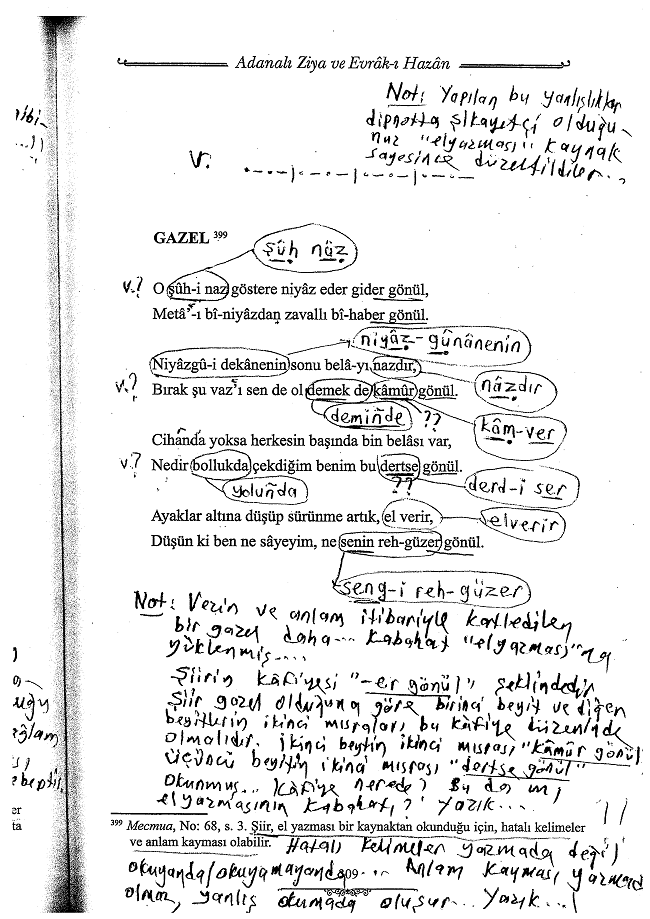 Adanalı Ziya ve Evrâk-ı Hazân
Not: Yapılan bu yanlışlıklar
dipnotta şikayetçi olduğu-
nuz "elyazması" kaynak
sayesince düzeltildiler...
V. . - . - | . . - - | . - . - | . . -
GAZEL 399
şûh nâz
V.? O şûh-i naz göstere niyâz eder gider gönül,
Metâ'-ı bî-niyâzdan zavallı bî-haber gönül.
niyâz-günânenin
Niyâzgû-i dekânenin sonu belâ-yı nazdır,
nâzdır
V.? Bırak şu vaz'ı sen de ol demek de kâmûr gönül.
demiñde ??
kâm-ver
Cihânda yoksa herkesin başında bin belâsı var,
V.? Nedir bollukda çekdiğim benim bu dertse gönül.
yoluñda
??
derd-i ser
Ayaklar altına düşüp sürünme artık, el verir,
elverir
Düşün ki ben ne sâyeyim, ne senin reh-güzer gönül.
seng-i reh-güzer
Not: Vezin ve anlam itibariyle katledilen
bir gazel daha... Kabahat "elyazması"na
yüklenmiş....
Şiirin kâfiyesi "-er gönül" şeklindedir
Şiir gazel olduğuna göre birinci beyit ve diğer
beyitlerin ikinci mısraları bu kâfiye düzeninde
olmalıdır. İkinci beytin ikinci mısrası "kâmûr gönül
üçüncü beyitin ikinci mısrası "dertse gönül"
okunmuş... Kâfiye nerede? Bu da mı
elyazmasının kabahatı? Yazık....
399 Mecmua, No: 68, s. 3. Şiir, el yazması bir kaynaktan okunduğu için, hatalı kelimeler
ve anlam kayması olabilir. Hatalı kelimeler yazmada değil
okuyanda/okuyamayanda... Anlam kayması yazmada
09
olmaz, yanlış okumada oluşur... Yazık...!